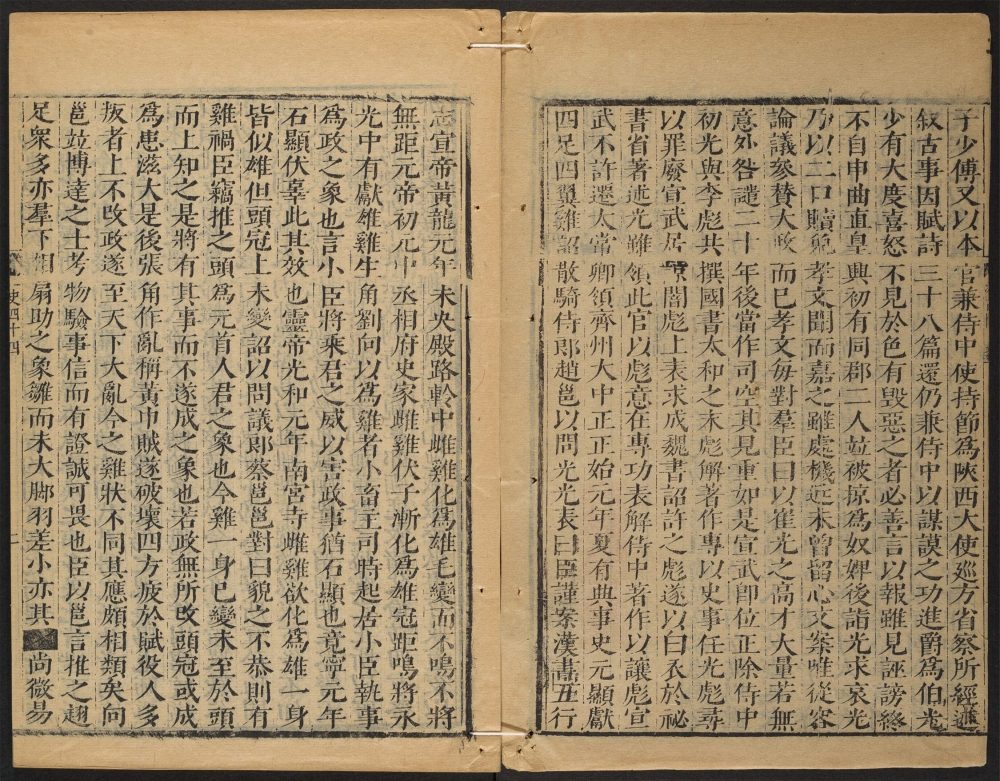 子少傅又以本官兼侍中使持節爲陝西大使巡方省察所經述
叙古事因賦詩三十八篇還仍兼侍中以謀謨之功進爵爲伯光
少有大度喜怒不見於色有毀惡之者必善言以報雖見誣謗終
不自申曲直皇興初有同郡二人並被掠爲奴婢後詣光求哀光
乃以二口贖免孝文聞而嘉之雖處機近未曾留心文案唯從容
論議參贊大政而已孝文每對羣臣曰以崔光之高才大量若無
意外咎譴二十年後當作司空其見重如是宣武即位正除侍中
初光與李彪共撰國書太和之末彪解著作專以史事任光彪尋
以罪廢宣武居闇彪上表求成魏書詔許之彪遂以白衣於祕
書省著述光雖領此官以彪意在專功表解侍中著作以讓彪宣
武不許還太常卿領齊州大中正正始元年夏有典事史元顯獻
四足四翼雞詔散騎侍郎趙邕以問光光表曰臣謹案漢書五行
志宣帝黃龍元年未央殿路軨中雌雞化爲雄毛變而不鳴不將
無距元帝初元中丞相府史家雌雞伏子漸化爲雄冠距鳴將永
光中有獻雄雞生角劉向以爲雞者小畜主司時起居小臣執事
爲政之象也言小臣將乘君之威以害政事猶石顯也竟寧元年
石顯伏辜此其效也靈帝光和元年南宮寺雌雞欲化爲雄一身
皆似雄但頭冠上未變詔以問議郎蔡邕邕對曰貌之不恭則有
雞禍臣竊推之頭爲元首人君之象也今雞一身已變未至於頭
而上知之是將有其事而不遂成之象也若政無所改頭冠或成
爲患滋大是後張角作亂稱黃巾賊遂破壞四方疲於賦役人多
叛者上不改政遂至天下大亂今之雞狀不同其應頗相類矣向
邕並博達之士考物驗事信而有證誠可畏也臣以邕言推之翅
足衆多亦羣下相扇助之象雛而未大脚羽差小亦其尚微易
史四十四